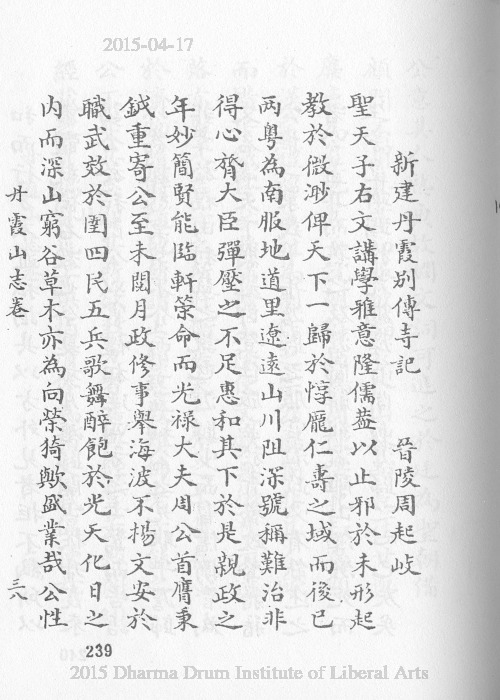 2015-04-17
新建丹霞別傳寺記 晉陵周起岐
聖天子右文講學雅意隆儒葢以止邪於未形起
教於微渺俾天下一歸於惇龐仁壽之域而後已
两粤為南服地道里遼遠山川阻深號稱難治非
得心膂大臣彈壓之不足惠和其下於是親政之
年妙簡賢能臨軒策命而光祿大夫周公首膺秉
鉞重寄公至未閱月政修事舉海波不揚文安於
職武效於圉四民五兵歌舞醉飽於光天化日之
内而深山窮谷草木亦為向榮猗歟盛業哉公性
丹霞山志卷
三八
239
2015 Dharma Drum Institute of Liberal Arts